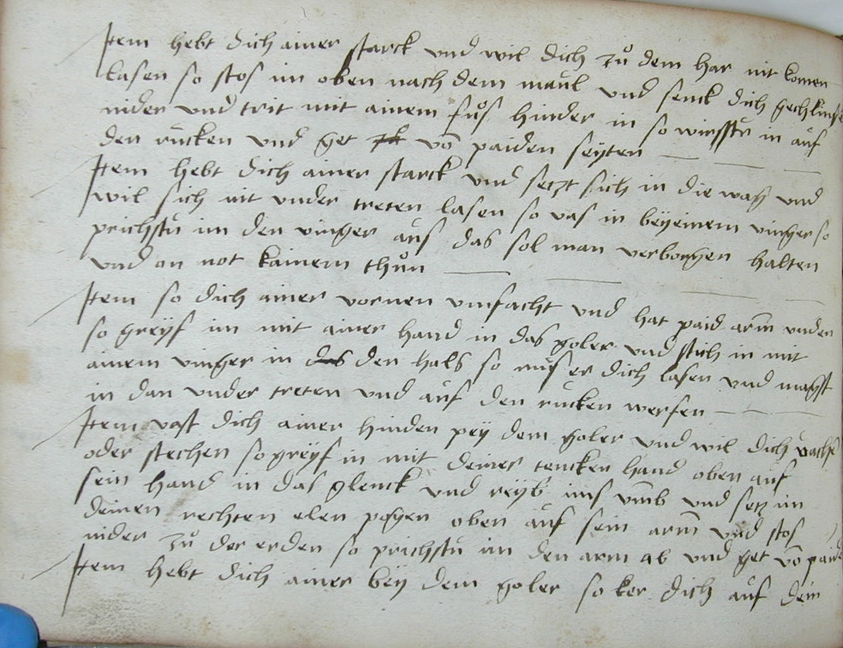 Item hebt dich ainer starck vnd wil dich zů dem har nit komen
lasen so stos im oben nach dem maul vnd senck dich gechling
nider vnd trit mit ainem fůs hinder in so wirffstu in auf
den rucken vnd get vō paiden seyten
Item hebt dich ainer starck vnd setzt sich in die wag vnd
wil sich nit vnder treten lasen so vas in bey einem vinger so
prichstu im den vinger auf das sol man verborgen halten
vnd on not kainem thůn
Item so dich ainer vornen vmfacht vnd hat paid arm vnden
so greyf im mit ainer hand in das goler vnd stich in mit
ainem vinger in das den hals so mus er dich lasen vnd magst
in dan vnder treten vnd auf den rucken werfen
Item vast dich ainer hinden pey dem goler vnd wil dich
oder stechen so greyf in mit deiner tencken hand oben auf
sein hand in das glenck vnd reyb ims vmb vnd setz im
deinen rechten elen pogen oben auf sein arm vnd stos
nider zů der erden so prichstu im den arm ab vnd get vō paid
Item hebt dich ainer bey dem goler so ker dich auf dein